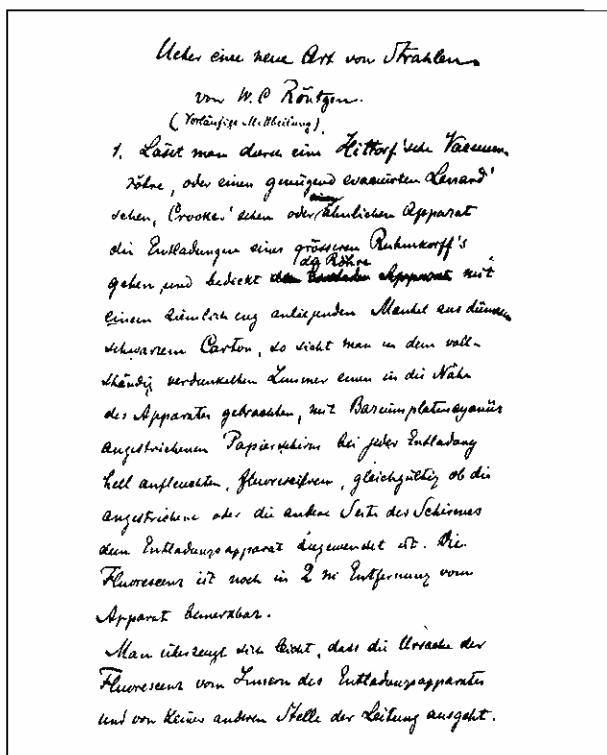 Ueber eine neue Art von Strahlen
von W. C Röntgen.
(Vorläufige Mittheilung).
1. Lässt man durch eine Hittorf'sche Vacuum-
röhre, oder einen genügend evacuirten Lenard'
schen, Crookes'schen oder ähnlichen Apparat
die Entladungen eines grösseren Ruhmkorff's
gehen, und bedeckt die Röhre mit
einem ziemlich eng anliegenden Mantel aus dünnem
schwarzem Carton, so sieht man in dem voll-
ständig verdunkelten Zimmer einen in die Nähe
des Apparates gebrachten, mit Bariumplatincyanür
angestrichenen Papierschirm bei jeder Entladung
hell aufleuchten, fluoresciren, gleichgültig ob die
angestrichene oder die andere Seite des Schirmes
dem Entladungsapparat zugewendet ist. Die
Fluorescenz ist noch in 2 m Entfernung vom
Apparat bemerkbar.
Man überzeugt sich leicht, dass die Ursache der
Fluorescenz vom Innern des Entladungsapparates
und von keiner anderen Stelle der Leitung ausgeht.